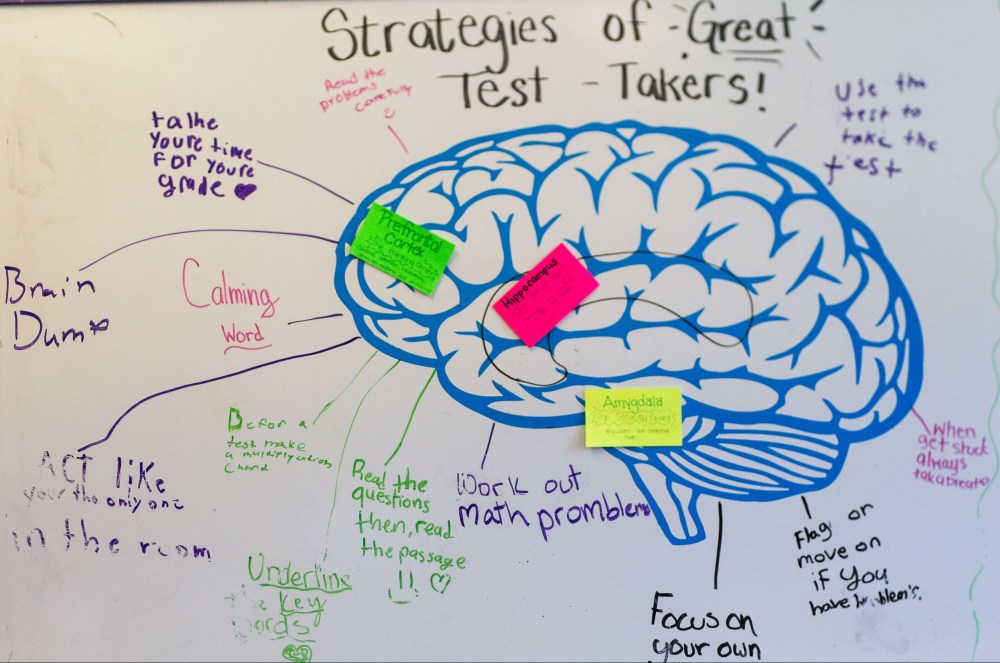 Strategies of Great
Test-Takers!
Read the
problems
carefully
Use the
test to
take the
test
talhe
youre time
For youre
grade
Brain
Dump
Calming
Word
ACT like
your the only one
in the room
Befor a
test make
a multiplycation
Chard
Underline
the key
words
Read the
questions
then, read
the passage
!!
Work out
math promblems
Focus on
your own
Flag or
move on
if you
have problem's.
When
get stuck
always
take a breath
Prefrontal
Cortex
Hippocampus
Amygdala